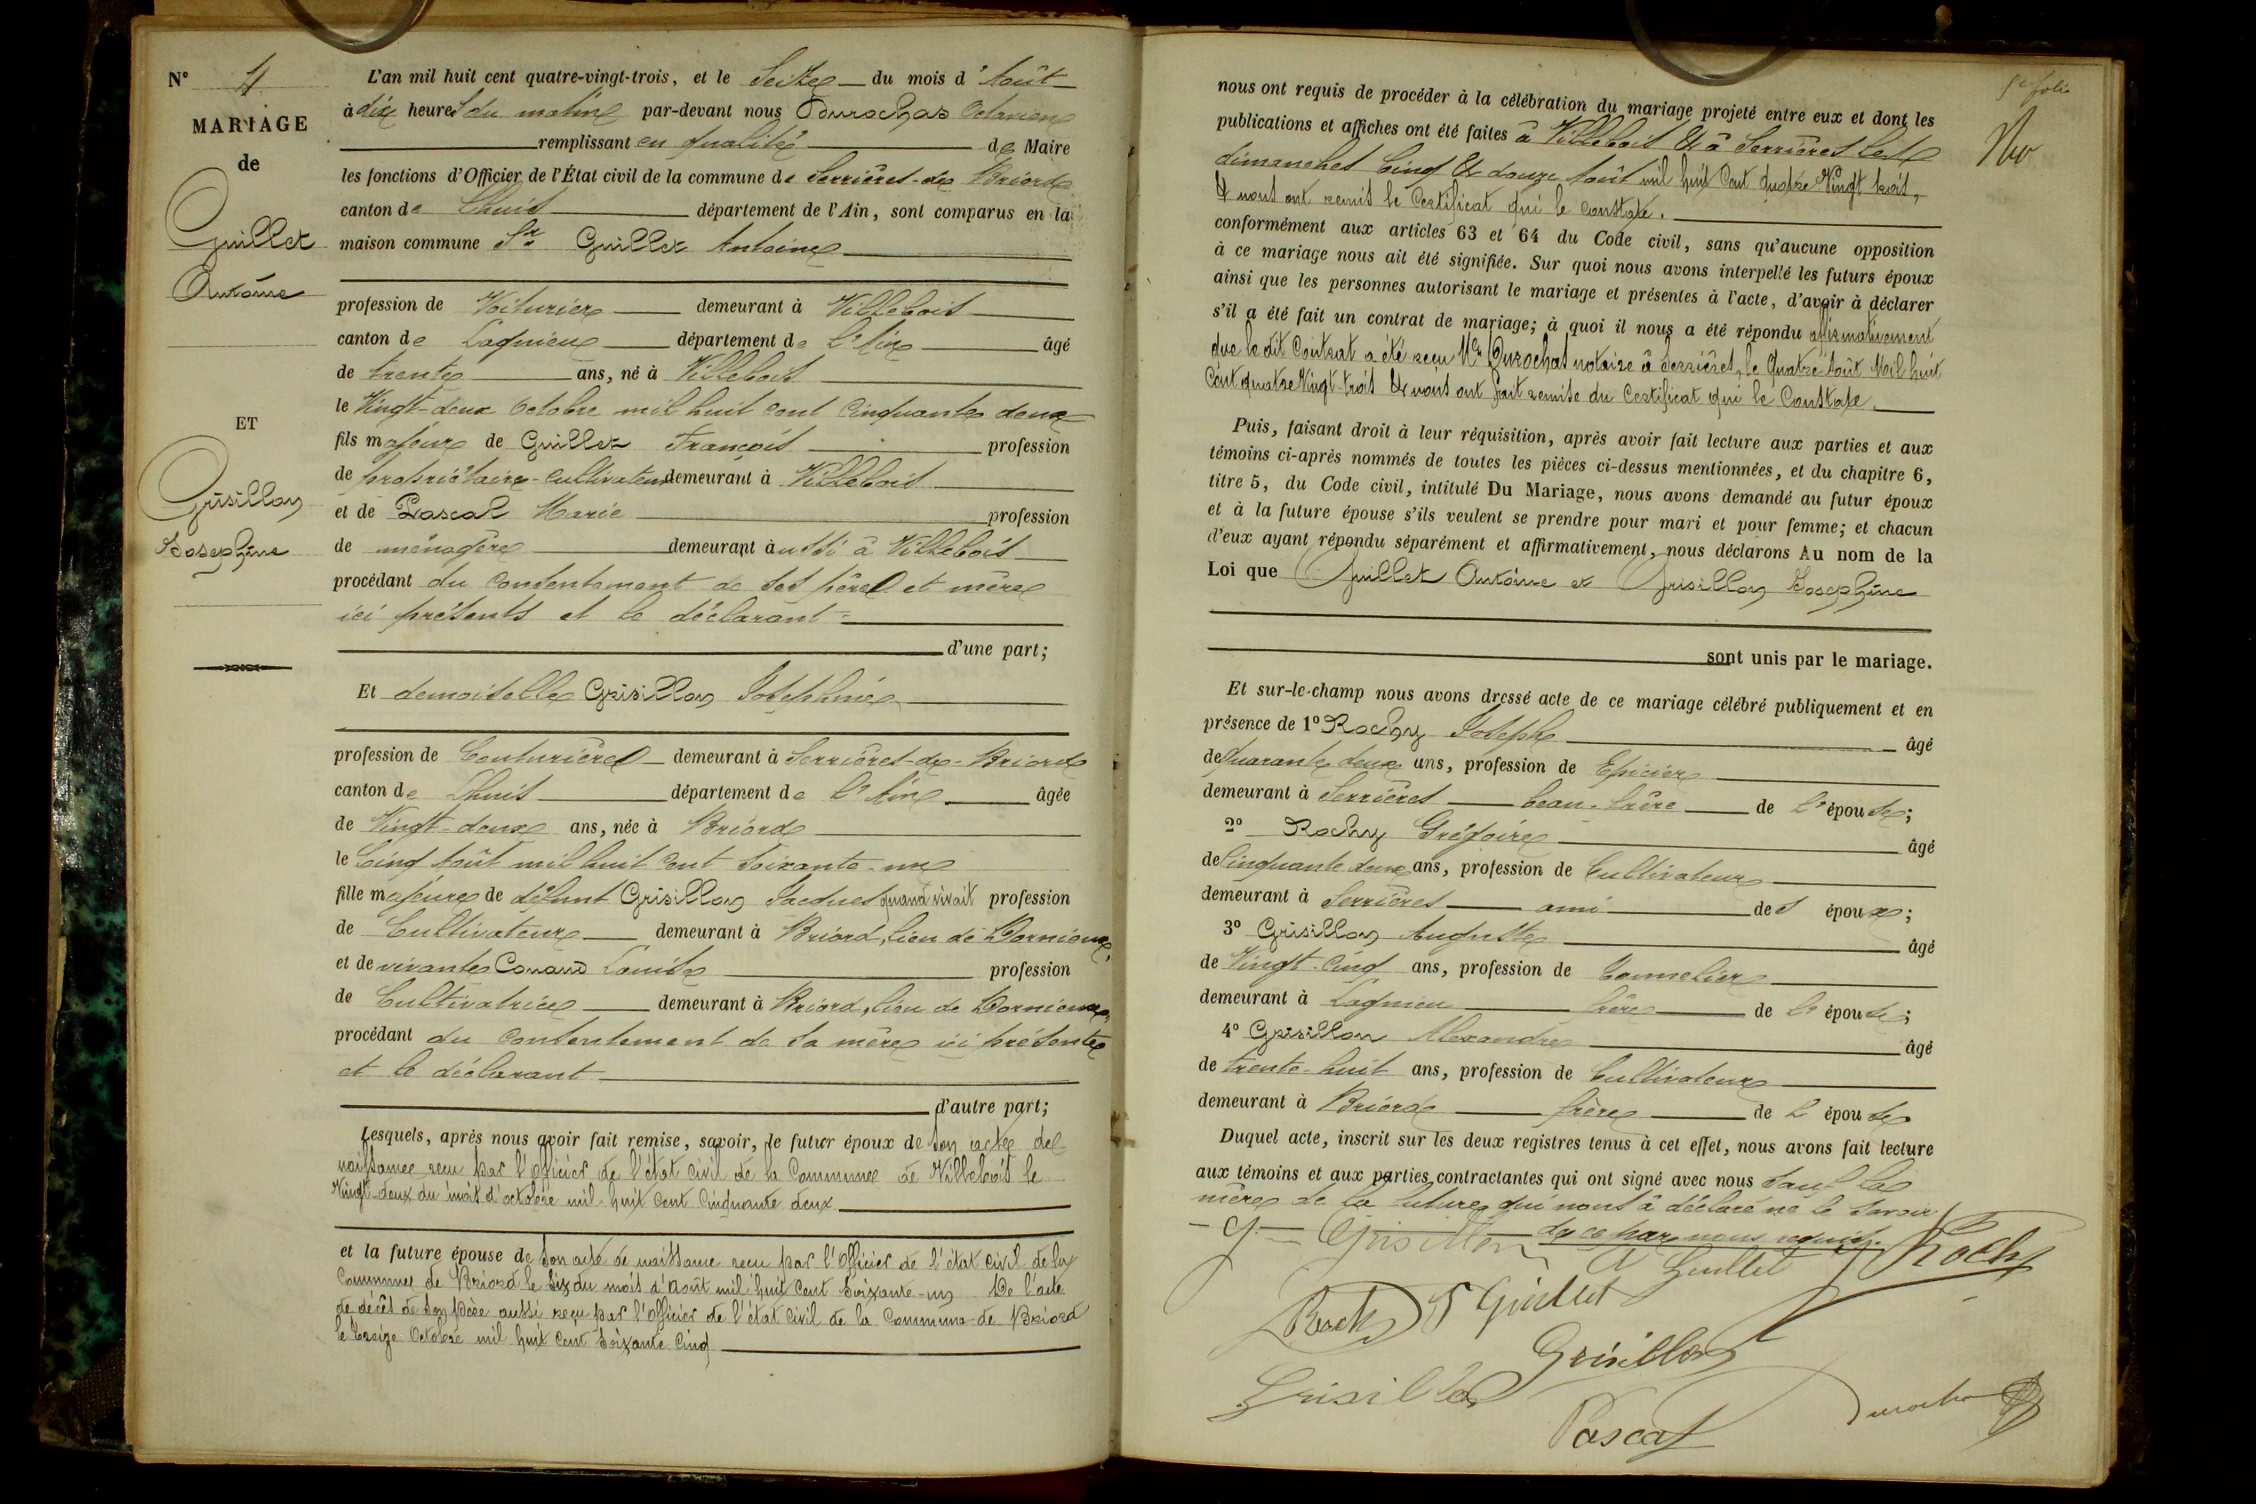 N° 4
MARIAGE
de
Guillet
Antoine
ET
Grisillon
Josephine
L'an mil huit cent quatre-vingt-trois, et le Seize du mois d'Août
à dix heures du matin par-devant nous Durochas Octavien
remplissant en qualité de Maire
les fonctions d'Officier de l'État civil de la commune de Serrières-de-Briord
canton de Lhuis département de l'Ain, sont comparus en la
maison commune Sr Guillet Antoine
profession de Voiturier demeurant à Villebois
canton de Lagnieu département de L'Ain âgé
de trente ans, né à Villebois
le Vingt-deux Octobre mil huit cent Cinquante deux
fils majeur de Guillet François profession
de propriétaire-cultivateur demeurant à Villebois
et de Pascal Marie profession
de ménagère demeurant aussi à Villebois
procédant du consentement de ses père et mère
ici présents et le déclarant
d'une part;
Et demoiselle Grisillon Joséphine
profession de Couturière demeurant à Serrières-de-Briord
canton de Lhuis département de L'Ain âgée
de Vingt-deux ans, née à Briord
le Cinq Août mil huit cent soixante-un
fille majeure de défunt Grisillon Jacques quand vivait profession
de Cultivateur demeurant à Briord, lieu de Dornieux,
et de vivante Conand Louise profession
de Cultivatrice demeurant à Briord, lieu de Dornieux,
procédant du consentement de sa mère ici présente
et le déclarant
d'autre part;
Lesquels, après nous avoir fait remise, savoir, le futur époux de son acte de
naissance reçu par l'officier de l'état civil de la Commune de Villebois le
Vingt-deux du mois d'octobre mil huit cent Cinquante deux
et la future épouse de son acte de naissance reçu par l'Officier de l'état civil de la
Commune de Briord le Six du mois d'Août mil huit cent Soixante-un De l'acte
de décès de son père aussi reçu par l'Officier de l'état civil de la Commune de Briord
le treize Octobre mil huit cent soixante cinq
5e folio
nous ont requis de procéder à la célébration du mariage projeté entre eux et dont les
publications et affiches ont été faites à Villebois & à Serrières les
dimanches Cinq & douze Août mil huit Cent quatre Vingt trois,
& nous ont remis le Certificat qui le constate.
conformément aux articles 63 et 64 du Code civil, sans qu'aucune opposition
à ce mariage nous ait été signifiée. Sur quoi nous avons interpellé les futurs époux
ainsi que les personnes autorisant le mariage et présentes à l'acte, d'avoir à déclarer
s'il a été fait un contrat de mariage; à quoi il nous a été répondu affirmativement
que le dit Contrat a été reçu Me Durochas notaire à Serrières, le quatre Août Mil huit
Cent quatre Vingt-trois & nous ont fait remise du Certificat qui le Constate.
Puis, faisant droit à leur réquisition, après avoir fait lecture aux parties et aux
témoins ci-après nommés de toutes les pièces ci-dessus mentionnées, et du chapitre 6,
titre 5, du Code civil, intitulé Du Mariage, nous avons demandé au futur époux
et à la future épouse s'ils veulent se prendre pour mari et pour femme; et chacun
d'eux ayant répondu séparément et affirmativement, nous déclarons Au nom de la
Loi que Guillet Antoine et Grisillon Josephine
sont unis par le mariage.
Et sur-le-champ nous avons dressé acte de ce mariage célébré publiquement et en
présence de 1° Rochy Joseph âgé
de quarante deux ans, profession de Epicier
demeurant à Serrières beau-frère de L'épouse;
2° Rochy Grégoire âgé
de Cinquante deux ans, profession de Cultivateur
demeurant à Serrières ami des époux;
3° Grisillon Auguste âgé
de Vingt-Cinq ans, profession de Tonnelier
demeurant à Lagnieu frère de L'épouse;
4° Grisillon Alexandre âgé
de trente-huit ans, profession de Cultivateur
demeurant à Briord frère de L'épouse
Duquel acte, inscrit sur les deux registres tenus à cet effet, nous avons fait lecture
aux témoins et aux parties contractantes qui ont signé avec nous sauf la
mère de la future qui nous a déclaré ne le savoir
de ce par nous requise.
J Grisillon A Guillet Rochy
Roch F Guillet
Grisillon
Grisillon
Pascal
Durochas